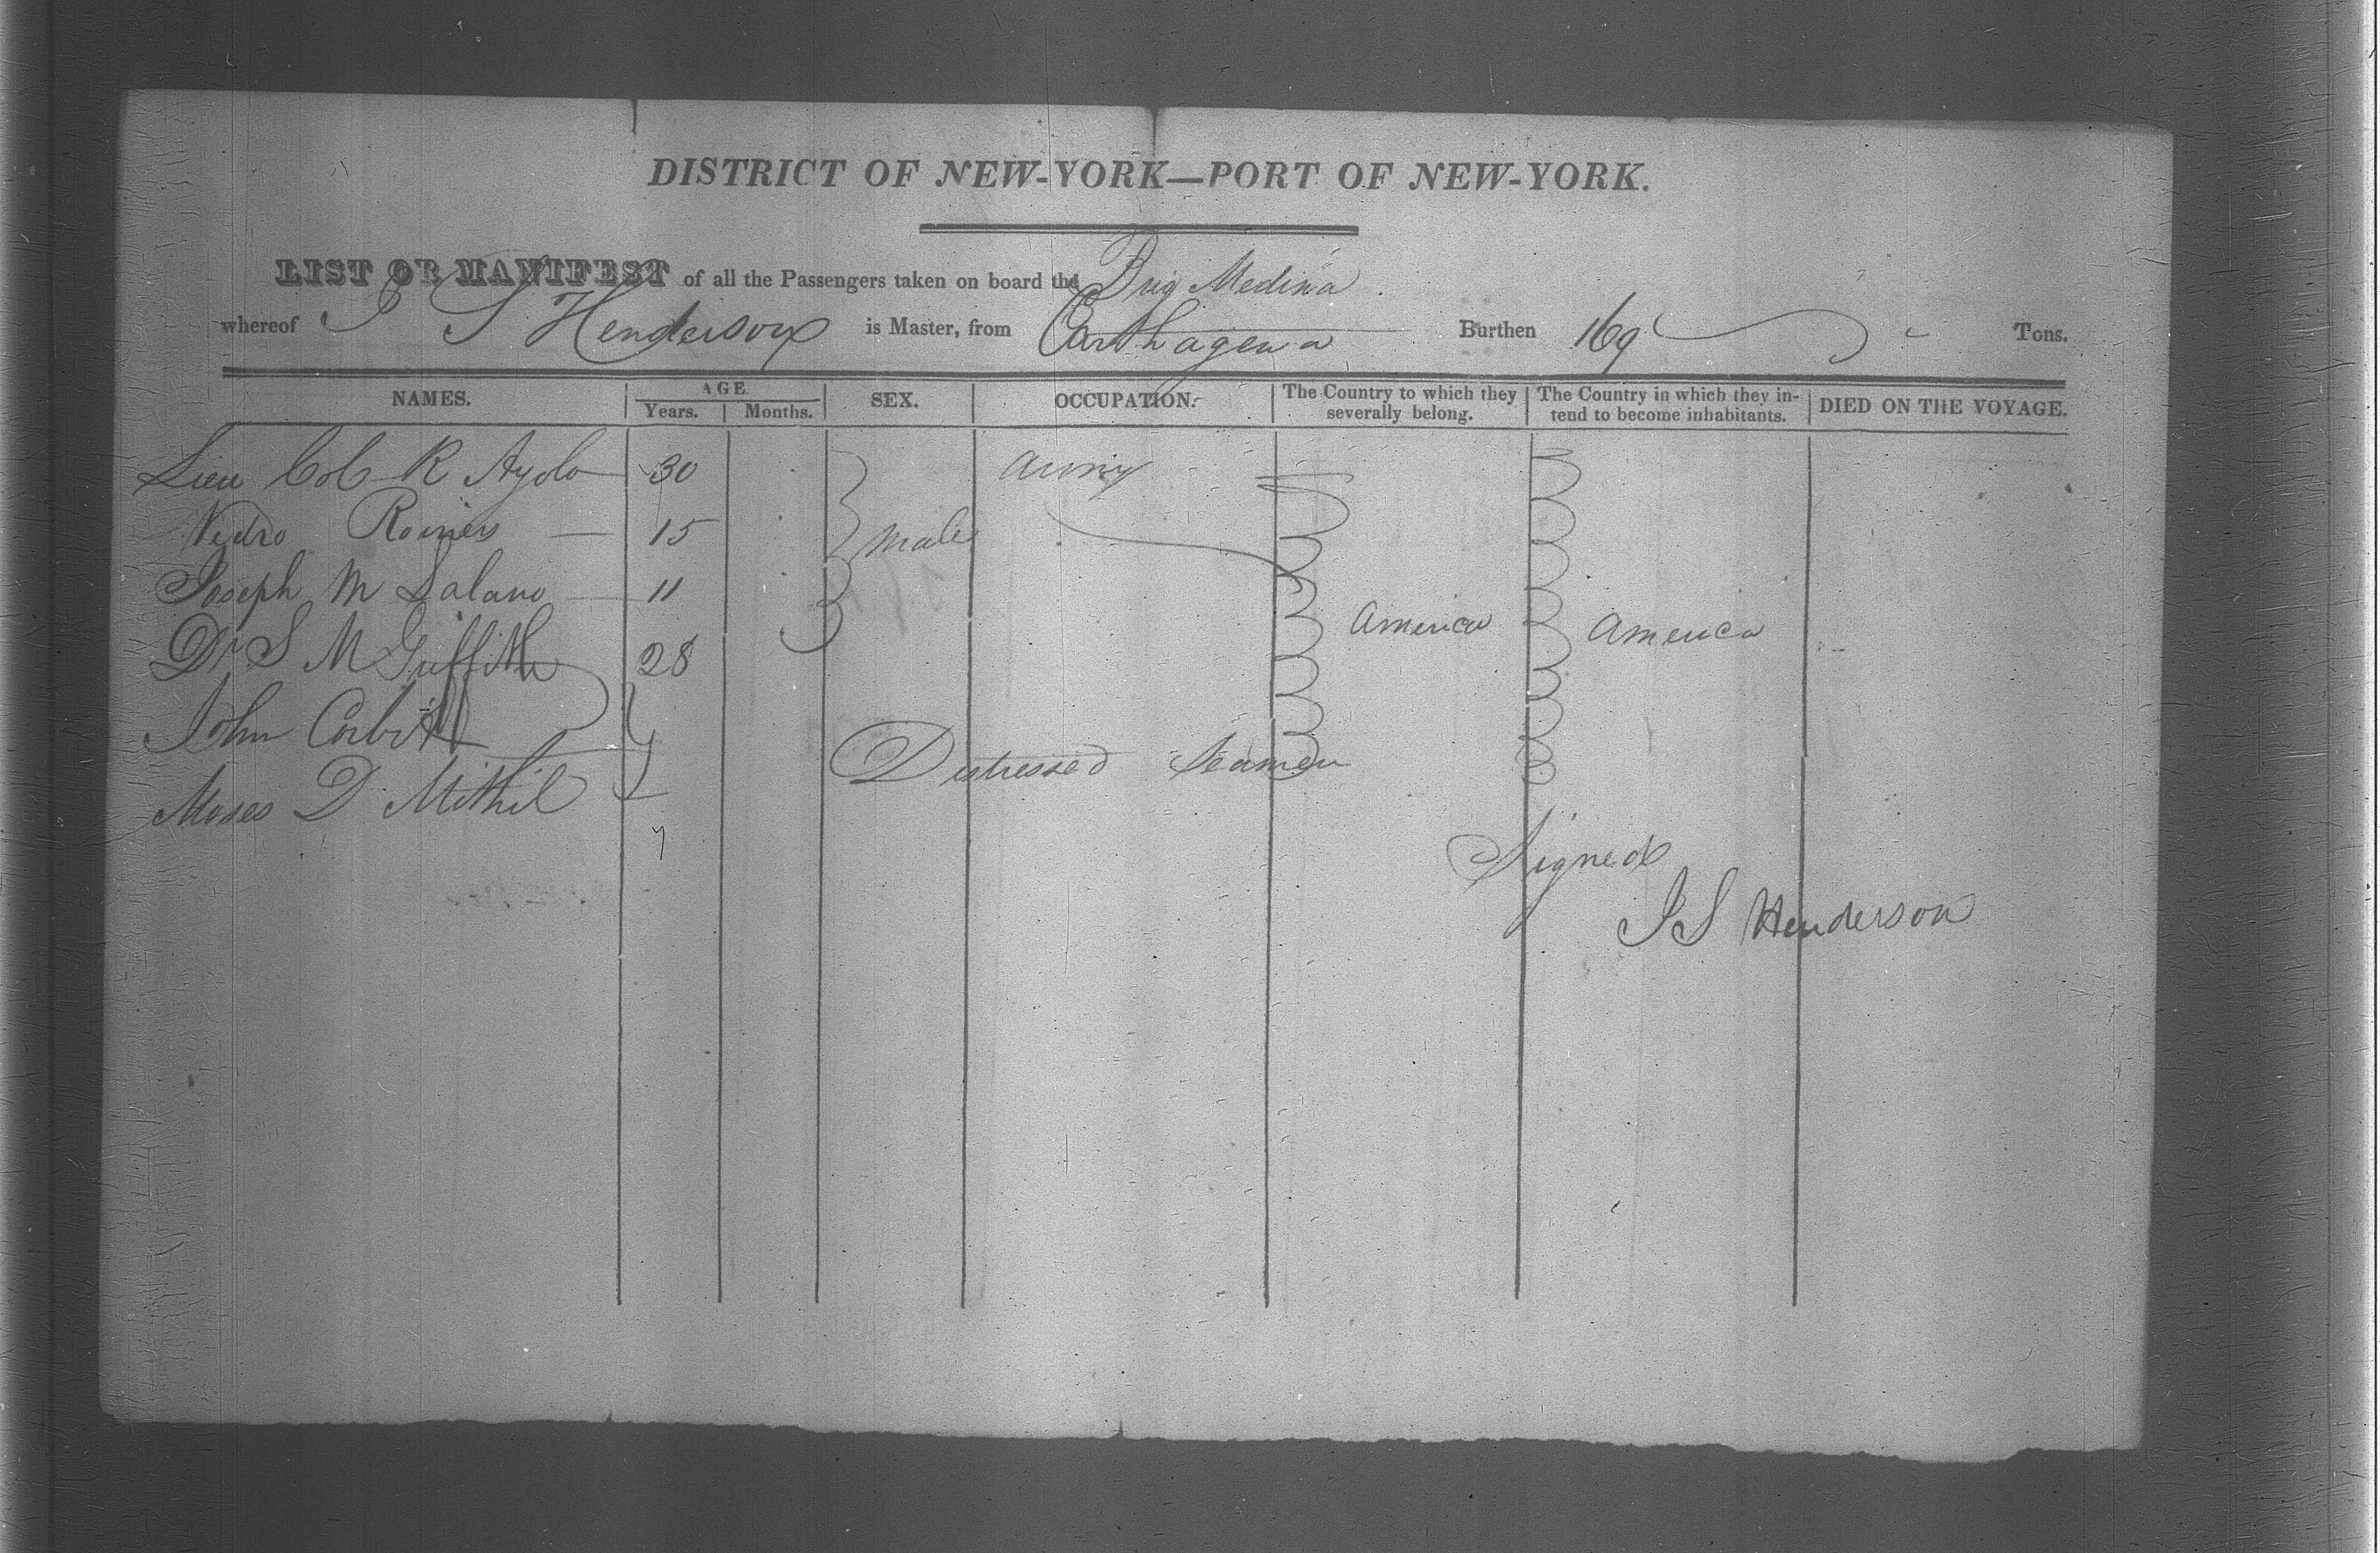 DISTRICT OF NEW-YORK—PORT OF NEW-YORK.
LIST OR MANIFEST of all the Passengers taken on board the Brig Medina
whereof J S Henderson is Master, from Carthagena Burthen 169 Tons.
NAMES. AGE. Years. Months. SEX. OCCUPATION. The Country to which they severally belong. The Country in which they intend to become inhabitants. DIED ON THE VOYAGE.
Lieu Col R 30 army
15 male
Joseph M Solano 11
Dr S M Griffith 28 America America
John Corbitt
Distressed Seamen
Moses D
Signed
J S Henderson